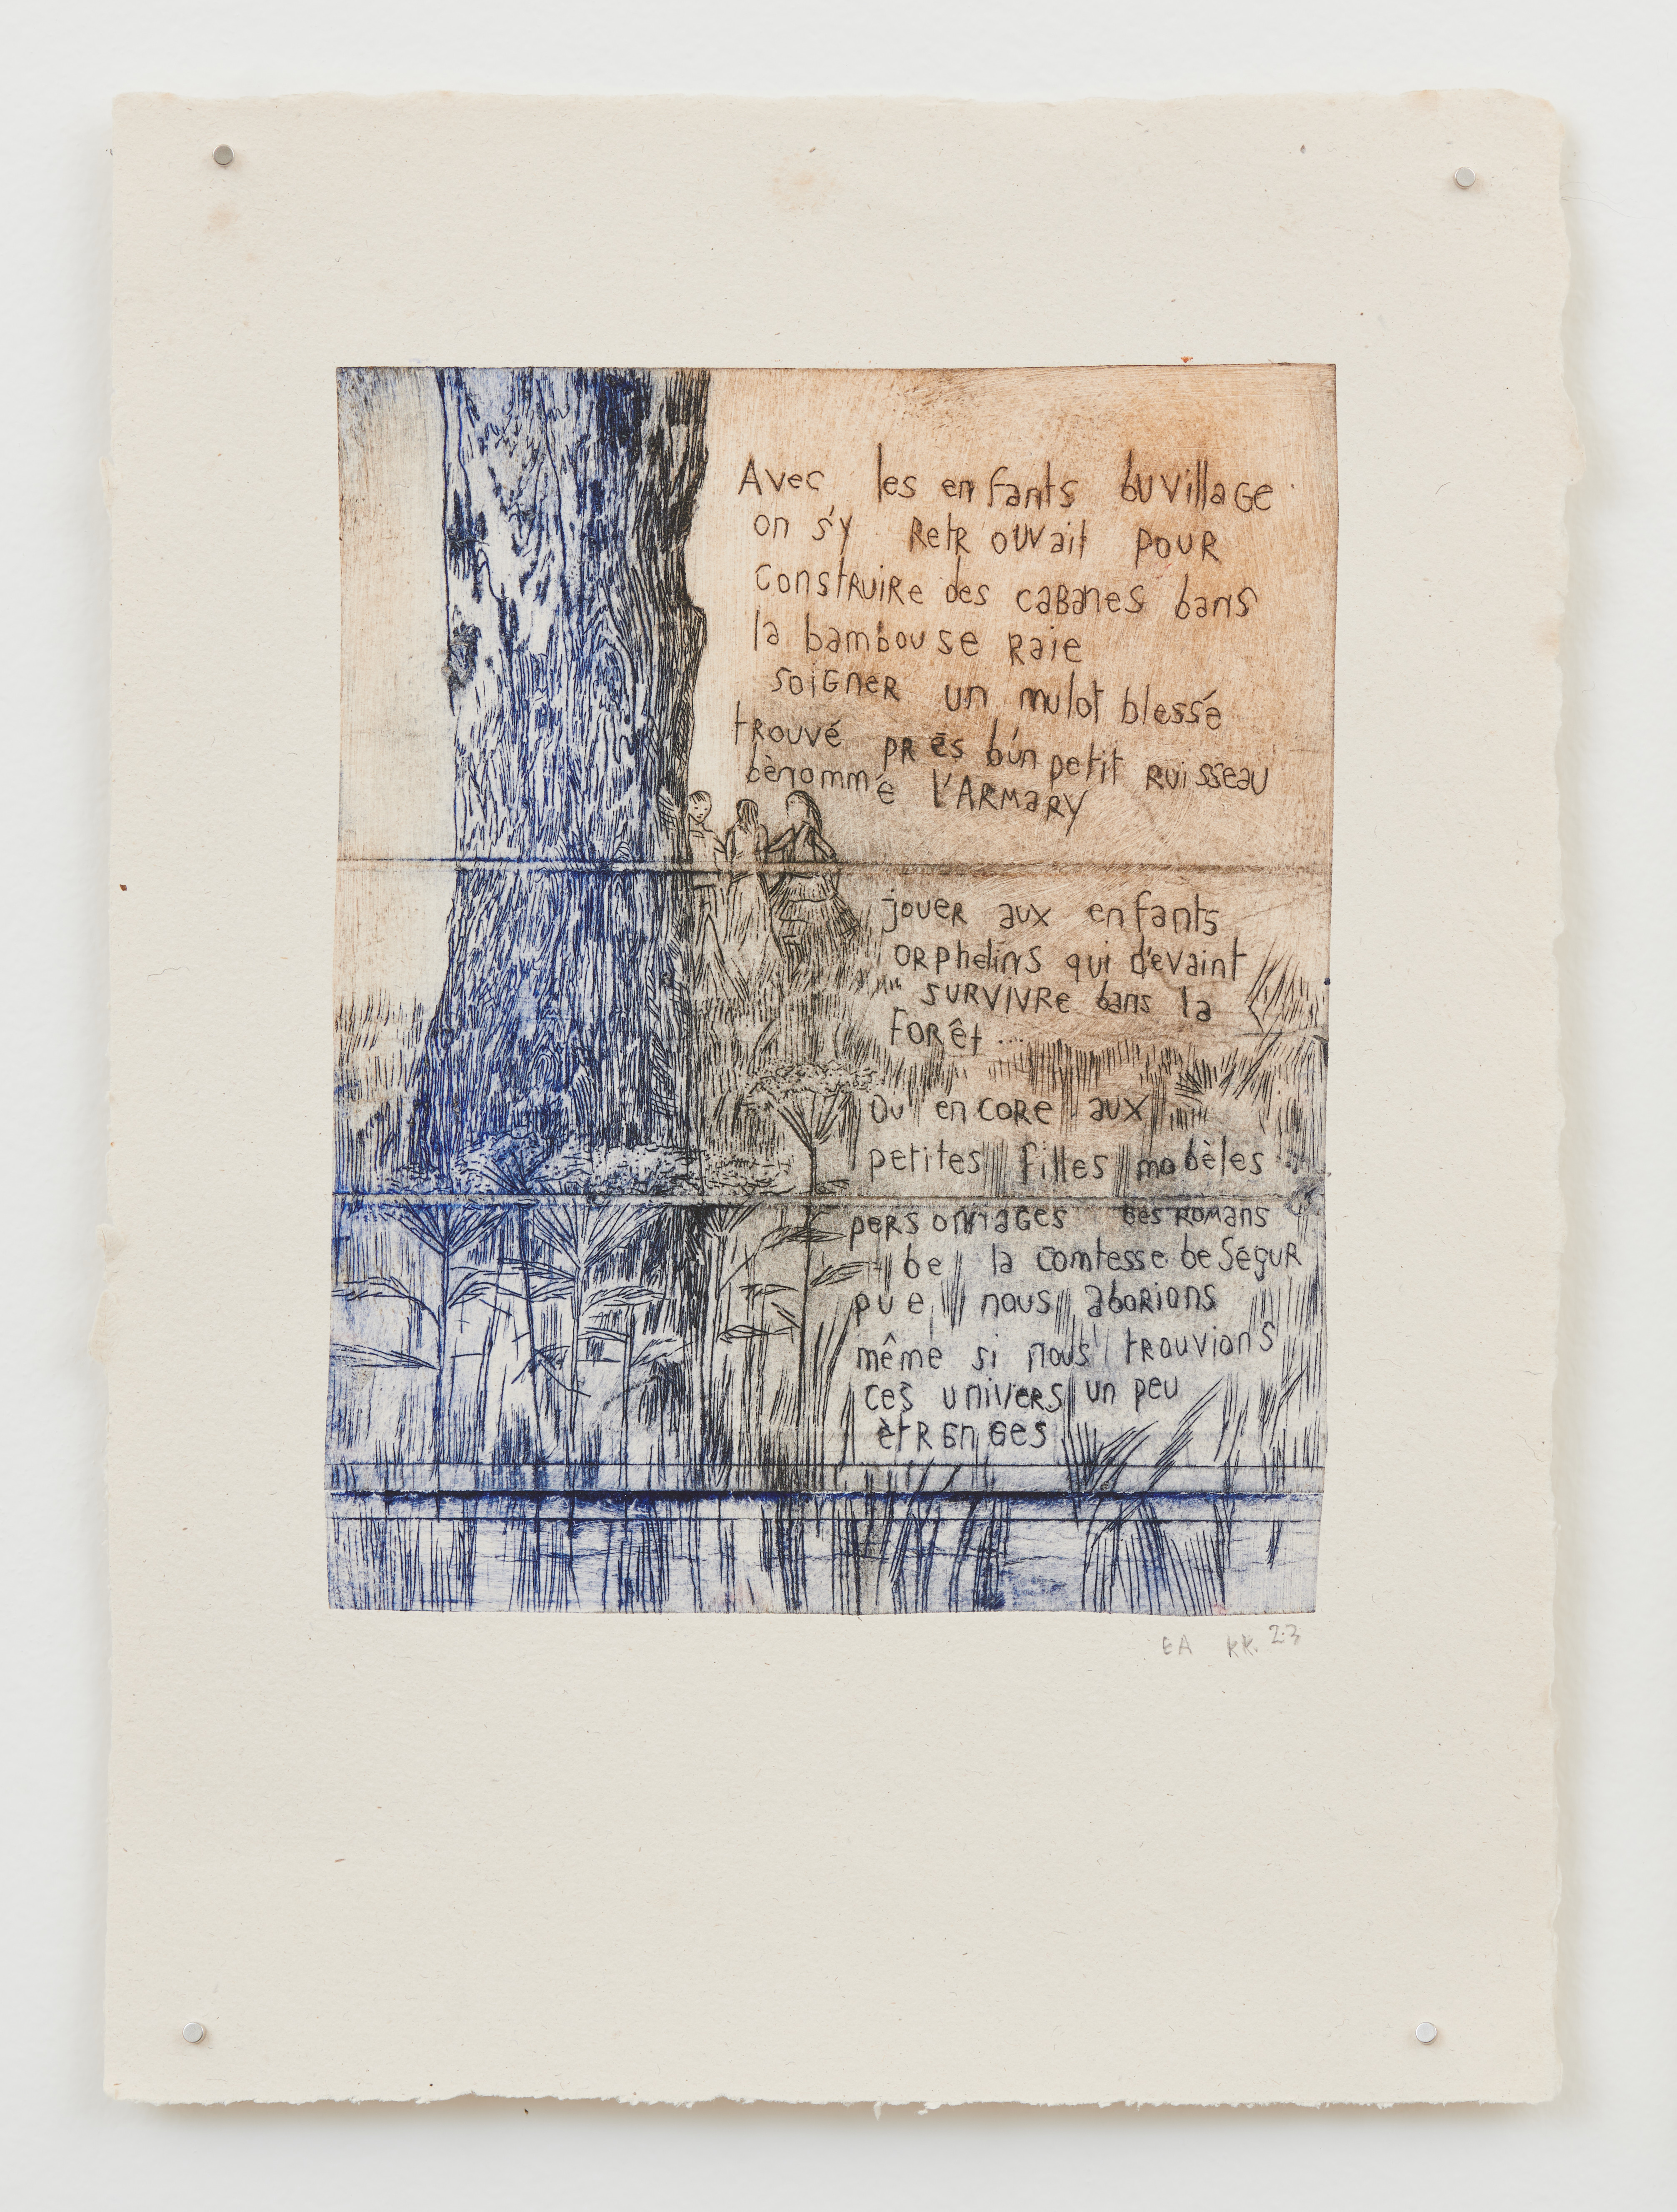 Avec les enfants bu village
on s'y RetRouvait pouR
construiRe des cabanes bans
la bambouseRaie
soiGneR un mulot blessé
tRouvé pRès b'un petit Ruisseau
bènommé l'ARMaRy
joueR aux enfants
oRphelins qui devaint
suRvivRe bans la
FoRêt...
Ou encoRe aux
petites filles mobèles
peRsonnaGes bes Romans
be la comtesse be SéguR
que nous aboRions
même si nous trouvions
ces univeRs un peu
ètRanGes
EA KK. 23